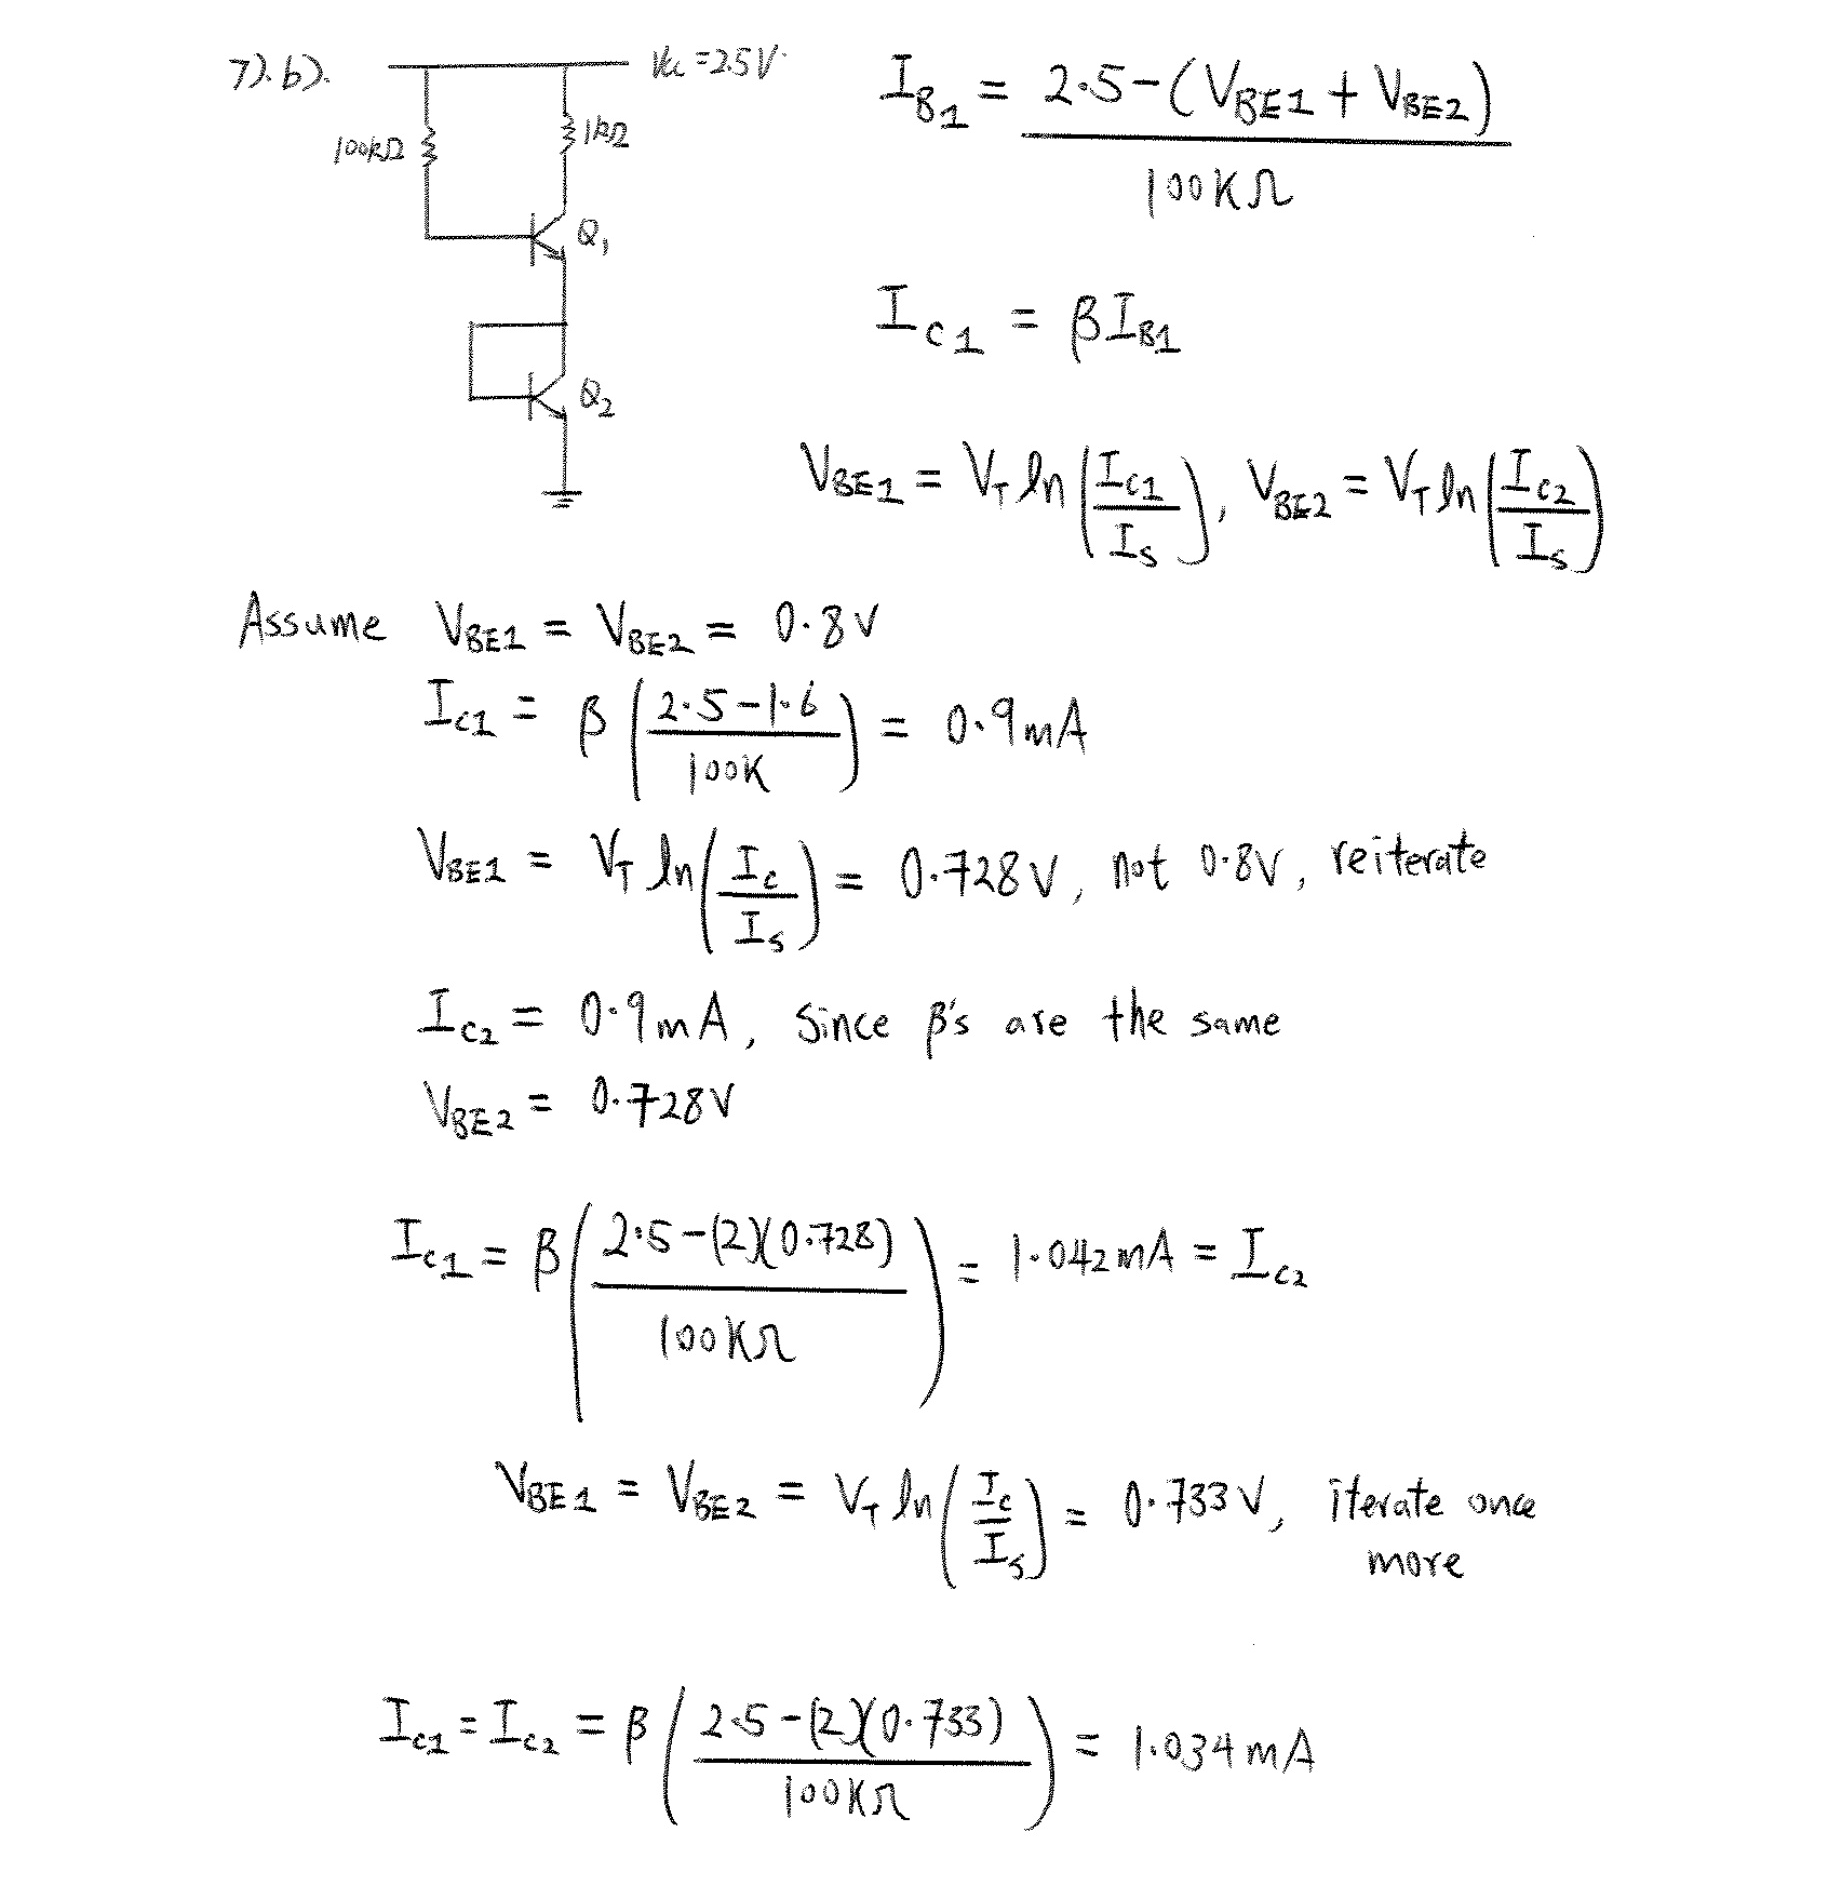 7).b).
Vcc = 2.5V
100kΩ
1kΩ
Q₁
Q₂
I_B1 = (2.5 - (V_BE1 + V_BE2)) / 100KΩ
I_C1 = βI_B1
V_BE1 = V_T ln(I_C1 / I_S), V_BE2 = V_T ln(I_C2 / I_S)
Assume V_BE1 = V_BE2 = 0.8V
I_C1 = β((2.5 - 1.6) / 100K) = 0.9mA
V_BE1 = V_T ln(I_C / I_S) = 0.728V, not 0.8V, reiterate
I_C2 = 0.9mA, since β's are the same
V_BE2 = 0.728V
I_C1 = β((2.5 - (2)(0.728)) / 100KΩ) = 1.042mA = I_C2
V_BE1 = V_BE2 = V_T ln(I_C / I_S) = 0.733V, iterate once
more
I_C1 = I_C2 = β((2.5 - (2)(0.733)) / 100KΩ) = 1.034mA